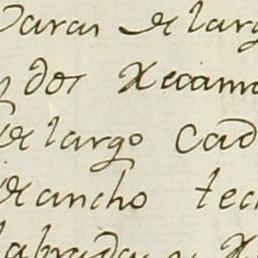 Varas de larg
y dos Xecama
de largo cad
de ancho tec
labradas y X